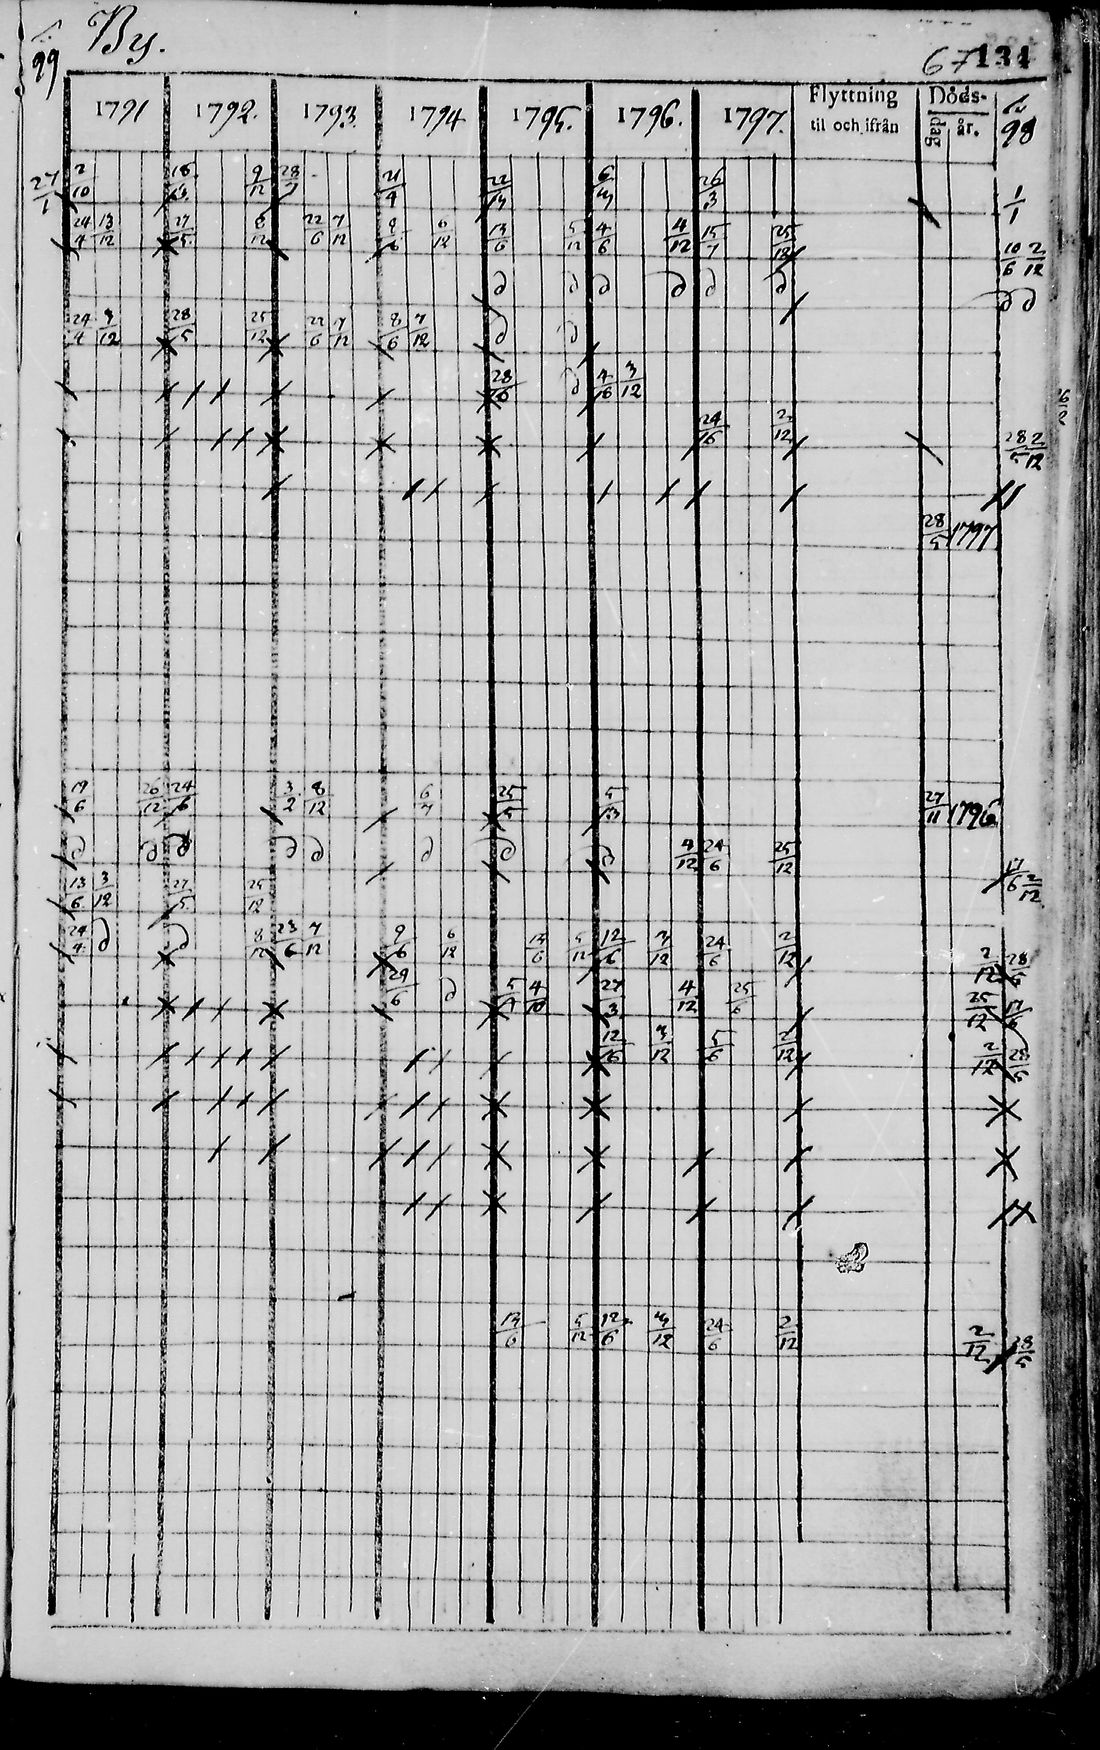 By.
99 67 134
1791 1792. 1793. 1794 1795. 1796. 1797. Flyttning til och ifrån Döds- dag år. 98
27/1 2/10 9/12 28/7 21/4 6/4 26/3 1/1
24/4 13/12 27/5 8/12 22/6 7/12 8/6 6/12 13/6 5/12 4/6 4/12 15/7 25/12 10/6 2/12
∂ ∂ ∂ ∂ ∂ ∂ ∂ ∂
24/4 3/12 28/5 25/12 22/6 7/12 8/6 7/12 ∂ ∂
28/6 ∂ 4/6 3/12
24/6 2/12 28/5 2/12
28/5 1797
19/6 26/12 24/6 3/2 8/12 6/7 25/5 27/11 1796
∂ ∂ ∂ ∂ ∂ ∂ ∂ ∂ 4/12 24/6 25/12
13/6 3/12 27/5 25/12 17/6 2/12
24/4 ∂ ∂ 8/12 23/6 7/12 9/6 6/12 13/6 5/12 12/6 3/12 24/6 2/12 2/12 28/5
29/6 ∂ 5/7 4/10 27/3 4/12 25/6 25/12 17/6
12/6 3/12 5/6 2/12 2/12 28/5
13/6 5/12 12/6 3/12 24/6 2/12 2/12 28/5